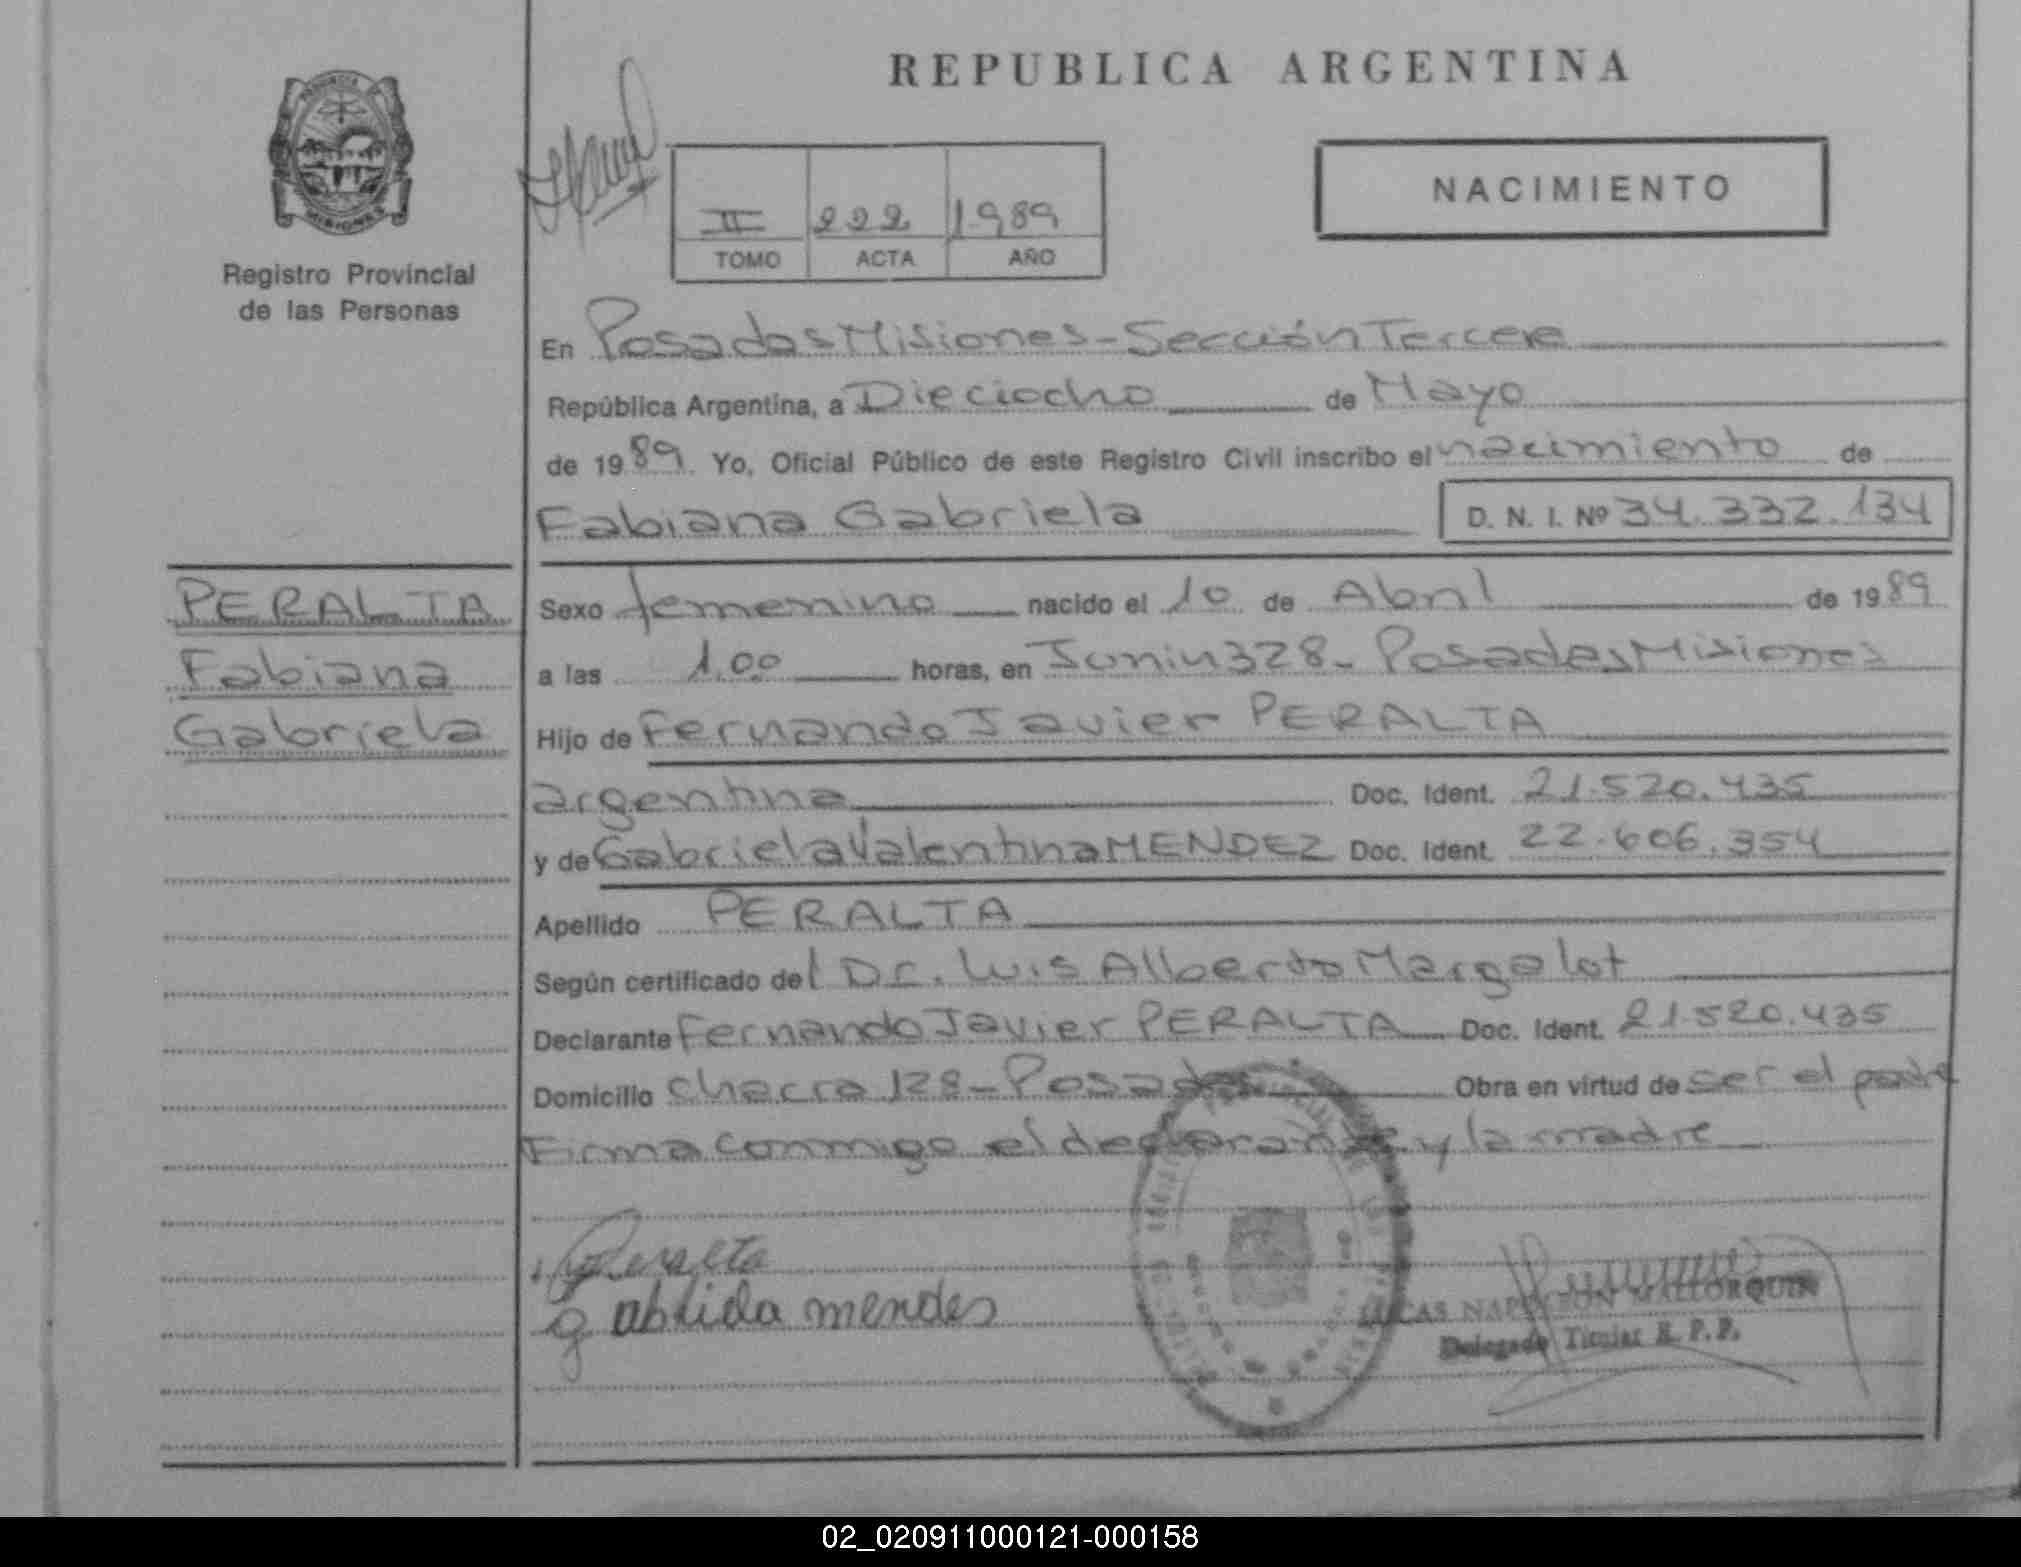 REPUBLICA ARGENTINA
NACIMIENTO
II 222 1989
TOMO ACTA AÑO
PROVINCIA
MISIONES
Registro Provincial
de las Personas
En Posadas Misiones - Sección Tercera
República Argentina, a Dieciocho de Mayo
de 1989. Yo, Oficial Público de este Registro Civil inscribo el nacimiento de
Fabiana Gabriela D. N. I. Nº 34.332.134
PERALTA
Fabiana
Gabriela
Sexo femenino nacido el 10 de Abril de 1989
a las 1.00 horas, en Junin 328 - Posadas Misiones
Hijo de Fernando Javier PERALTA
argentina Doc. Ident. 21.520.435
y de Gabriela Valentina MENDEZ Doc. Ident. 22.606.354
Apellido PERALTA
Según certificado del Dr. Luis Alberto Margalot
Declarante Fernando Javier PERALTA Doc. Ident. 21.520.435
Domicilio chacra 128 - Posadas Obra en virtud de ser el padre
Firma conmigo el declarante y la madre
Peralta
mendes
LUCAS NAPOLEON MALLORQUIN
Delegado Titular R. P. P.
02_020911000121-000158